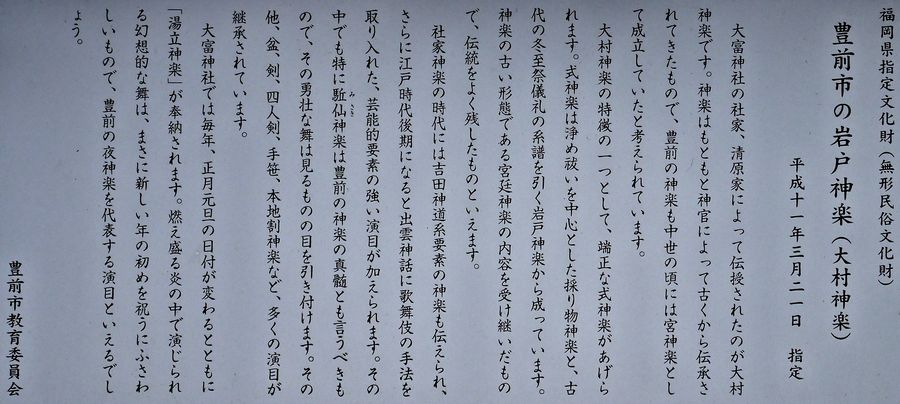 福岡県指定文化財(無形民俗文化財)
豊前市の岩戸神楽(大村神楽)
平成十一年三月二一日　指定
大富神社の社家、清原家によって伝授されたのが大村
神楽です。神楽はもともと神官によって古くから伝承さ
れてきたもので、豊前の神楽も中世の頃には宮神楽とし
て成立していたと考えられています。
大村神楽の特徴の一つとして、端正な式神楽があげら
れます。式神楽は浄め祓いを中心とした採り物神楽と、古
代の冬至祭儀礼の系譜を引く岩戸神楽から成っています。
神楽の古い形態である宮廷神楽の内容を受け継いだもの
で、伝統をよく残したものといえます。
社家神楽の時代には吉田神道系要素の神楽も伝えられ、
さらに江戸時代後期になると出雲神話に歌舞伎の手法を
取り入れた、芸能的要素の強い演目が加えられます。その
中でも特に駈仙神楽は豊前の神楽の真髄とも言うべきも
みさき
ので、その勇壮な舞は見るものの目を引き付けます。その
他、盆、剣、四人剣、手笹、本地割神楽など、多くの演目が
継承されています。
大富神社では毎年、正月元旦の日付が変わるとともに
「湯立神楽」が奉納されます。燃え盛る炎の中で演じられ
る幻想的な舞は、まさに新しい年の初めを祝うにふさわ
しいもので、豊前の夜神楽を代表する演目といえるでし
ょう。
豊前市教育委員会